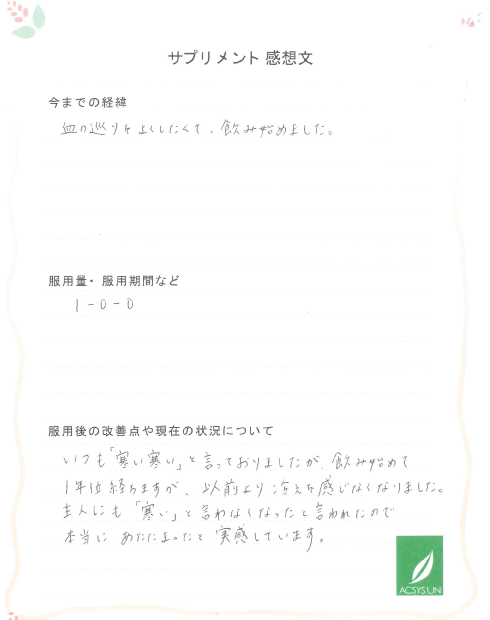 サプリメント 感想文
今までの経緯
血の巡りをよくしたくて、飲み始めました。
服用量・服用期間など
1-0-0
服用後の改善点や現在の状況について
いつも「寒い寒い」と言っておりましたが、飲み始めて
1年位経ちますが、以前より冷えを感じなくなりました。
主人にも「寒い」と言わなくなったと言われたので
本当に あたたまったと 実感しています。
ACSYSUN